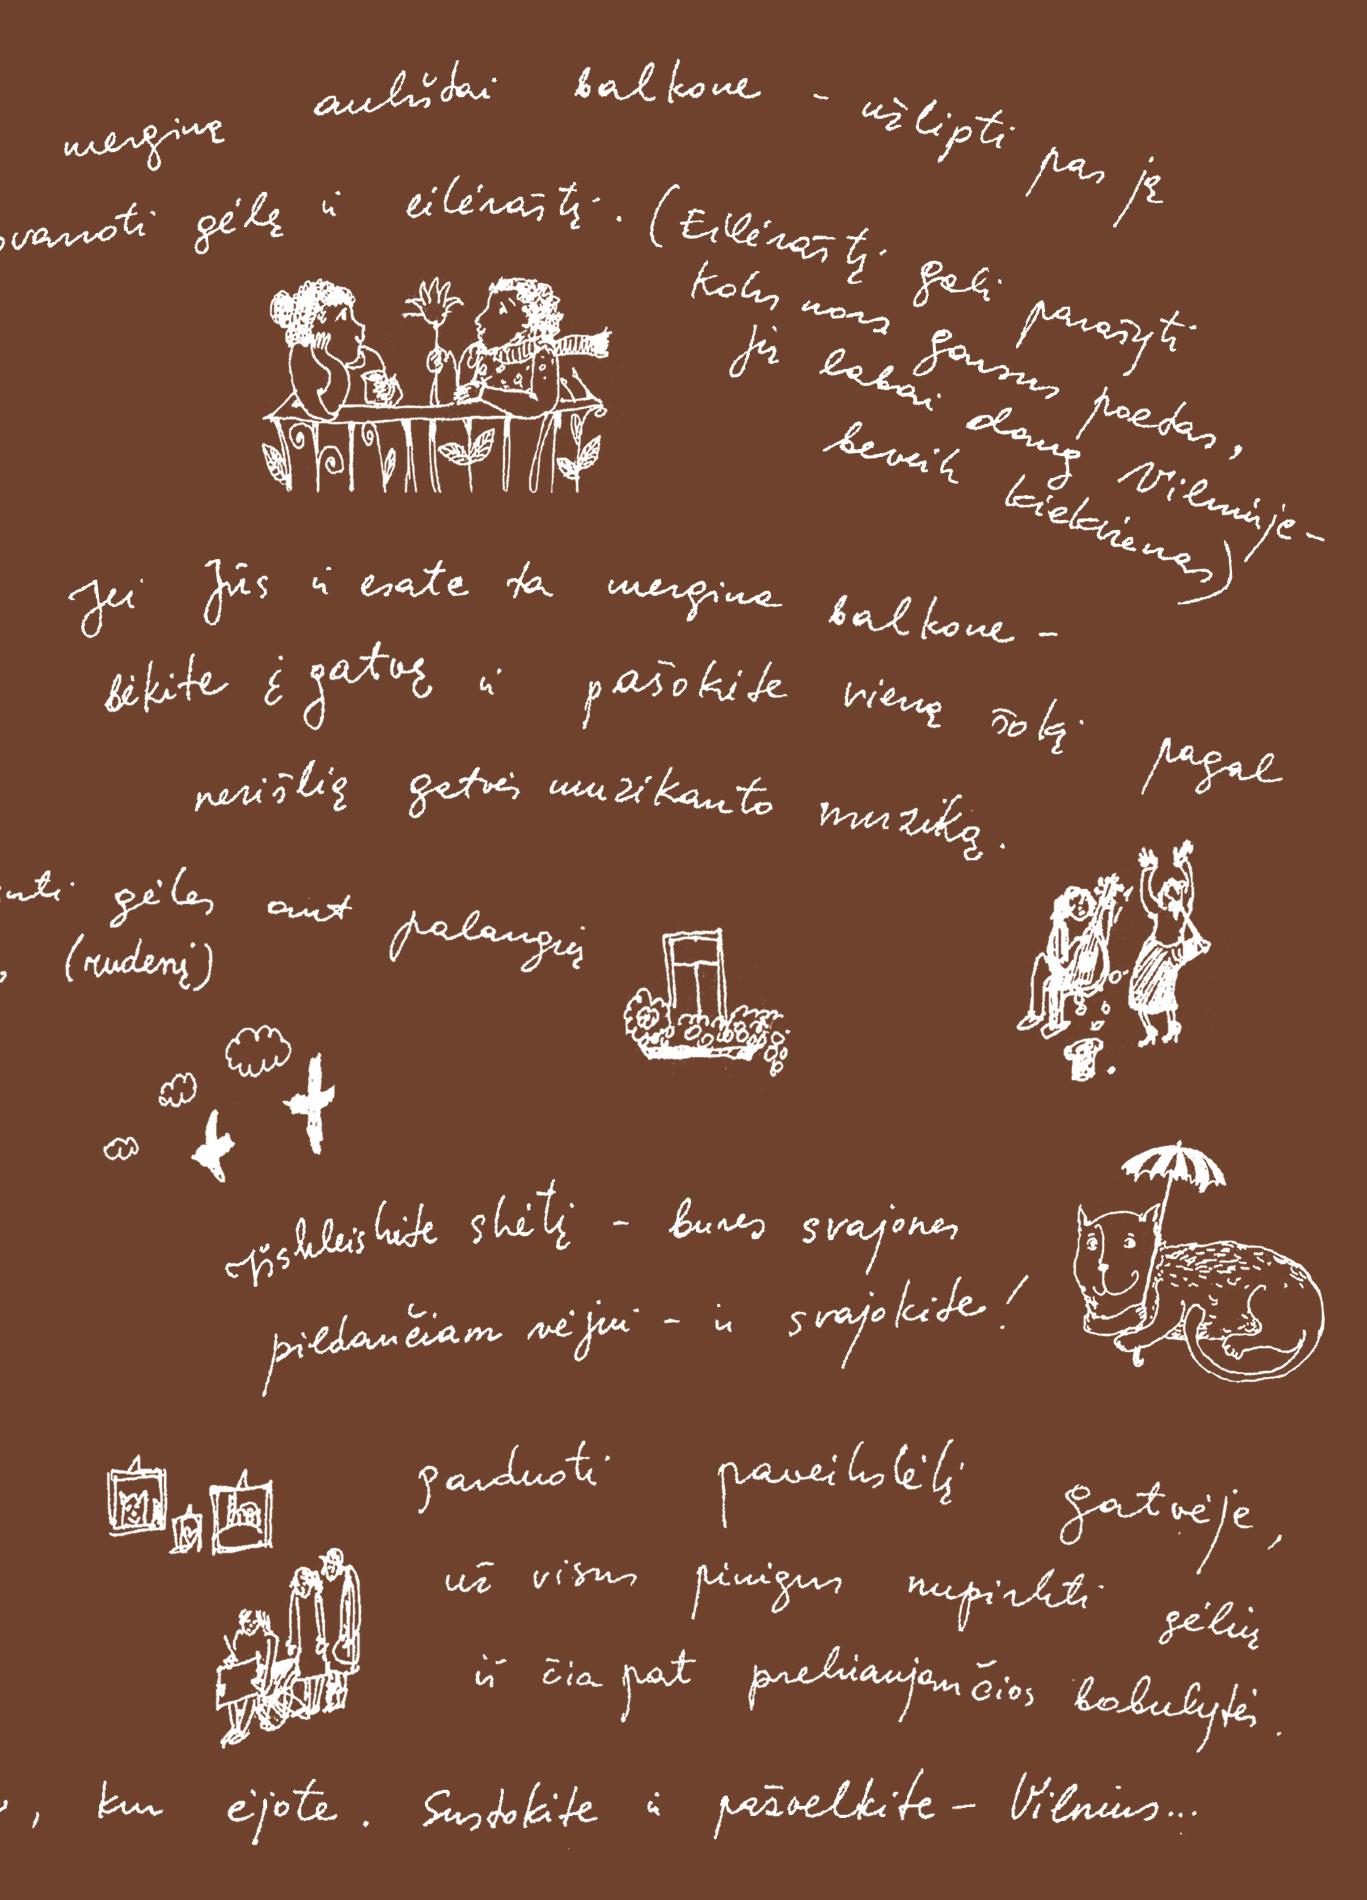 merginą aukštai balkone - užlipti pas ją
ovanoti gėlę ir eilėraštį. (Eilėraštį gali parašyti
koks nors garsus poetas,
jų labai daug Vilniuje -
beveik kiekvienas)
Jei Jūs ir esate ta mergina balkone -
bėkite į gatvę ir pašokite vieną šokį pagal
nerišlią gatvės muzikanto muziką.
inti gėles ant palangių
, (rudenį)
Išskleiskite skėtį - bures svajones
pildančiam vėjui - ir svajokite!
parduoti paveikslėlį gatvėje,
už visus pinigus nupirkti gėlių
iš čia pat prekiaujančios bobulytės.
, kur ėjote. Sustokite ir pažvelkite - Vilnius...